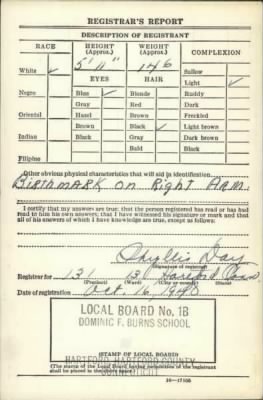 REGISTRAR'S REPORT
DESCRIPTION OF REGISTRANT
RACE HEIGHT (Approx.) WEIGHT (Approx.) COMPLEXION
5' 11" 146
White ✓ Sallow
EYES HAIR Light ✓
Negro Blue ✓ Blonde Ruddy
Gray Red Dark
Oriental Hazel Brown Freckled
Brown Black ✓ Light brown
Indian Black Gray Dark brown
Bald Black
Filipino
Other obvious physical characteristics that will aid in identification
Birthmark on Right Arm.
I certify that my answers are true; that the person registered has read or has
had read to him his own answers; that I have witnessed his signature or mark and that
all of his answers of which I have knowledge are true, except as follows:
Phyllis Day
(Signature of registrar)
Registrar for 131 13 Hartford Conn
(Precinct) (Ward) (City or county) (State)
Date of registration Oct. 16, 1940
LOCAL BOARD No. 1B
DOMINIC F. BURNS SCHOOL
HARTFORD, HARTFORD COUNTY
CONNECTICUT
(STAMP OF LOCAL BOARD)
(The stamp of the Local Board having jurisdiction of the registrant
shall be placed in the above space.)